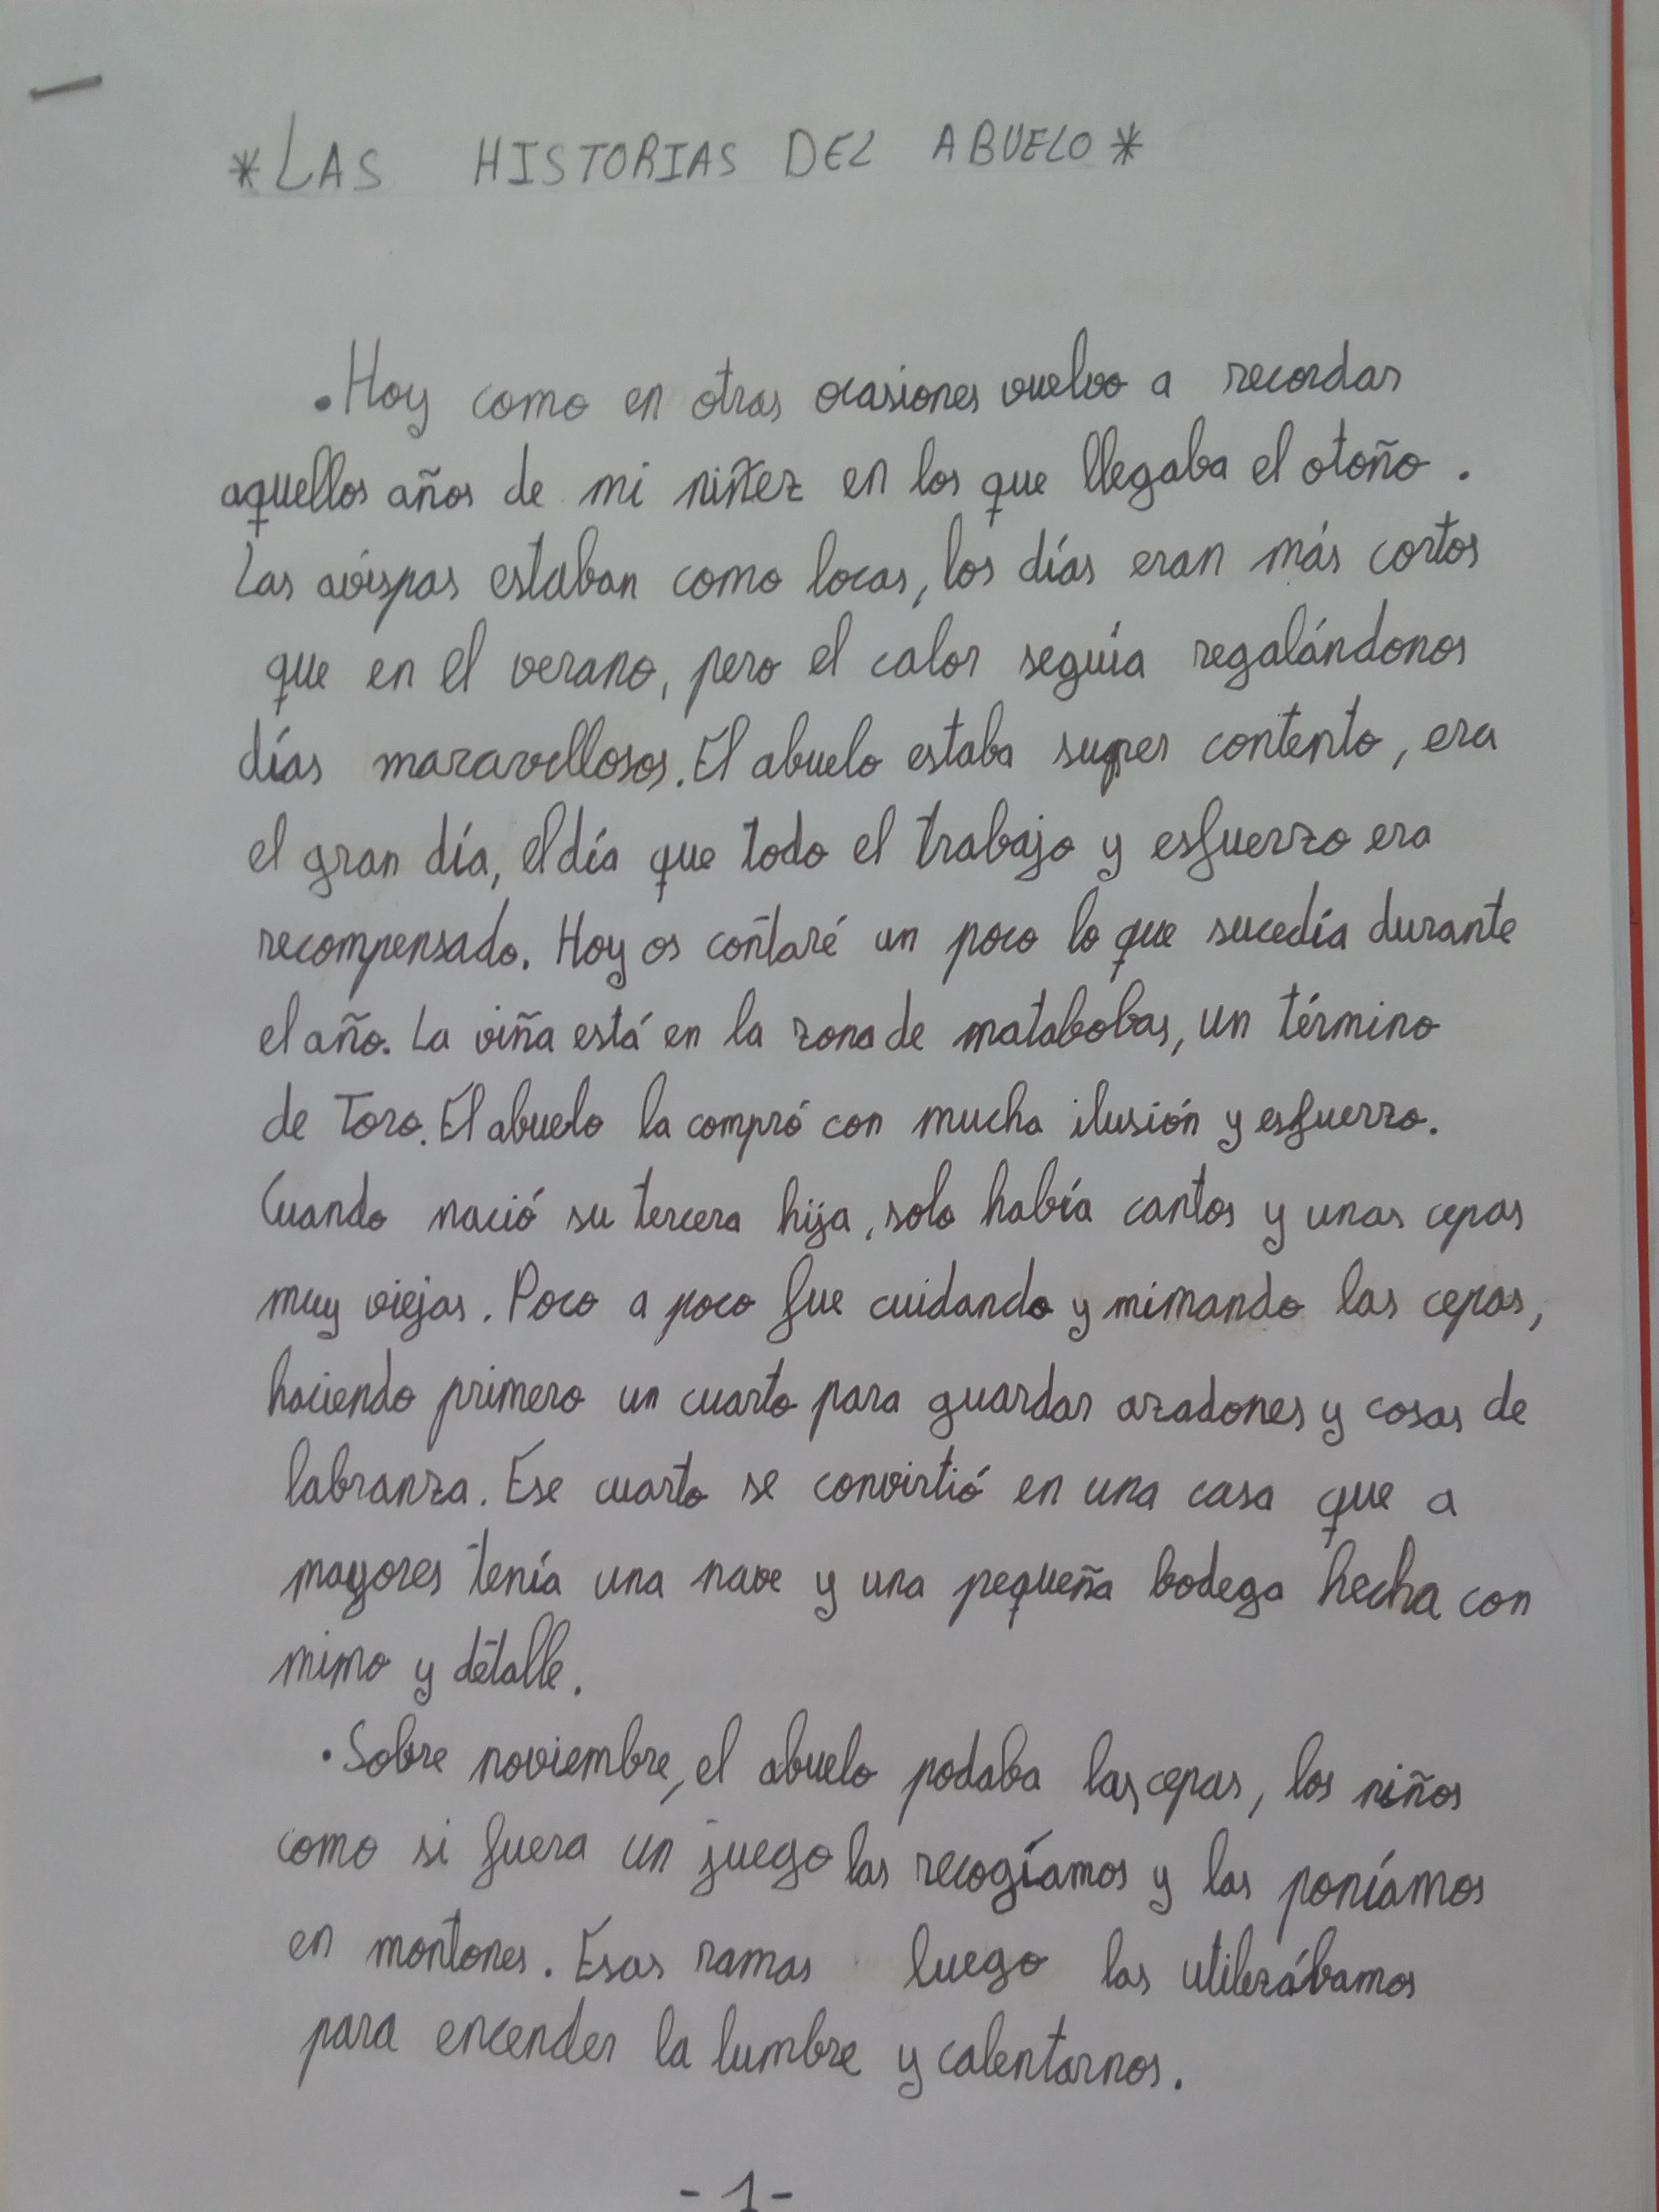 *LAS HISTORIAS DEL ABUELO*
.Hoy como en otras ocasiones vuelvo a recordar
aquellos años de mi niñez en los que llegaba el otoño.
Las avispas estaban como locas, los días eran más cortos
que en el verano, pero el calor seguía regalándonos
días maravillosos. El abuelo estaba super contento, era
el gran día, el día que todo el trabajo y esfuerzo era
recompensado. Hoy os contaré un poco lo que sucedía durante
el año. La viña está en la zona de matabobas, un término
de Toro. El abuelo la compró con mucha ilusión y esfuerzo.
Cuando nació su tercera hija, solo había cantos y unas cepas
muy viejas. Poco a poco fue cuidando y mimando las cepas,
haciendo primero un cuarto para guardar azadones y cosas de
labranza. Ese cuarto se convirtió en una casa que a
mayores tenía una nave y una pequeña bodega hecha con
mimo y detalle.
.Sobre noviembre, el abuelo podaba las cepas, los niños
como si fuera un juego las recogíamos y las poníamos
en montones. Esas ramas luego las utilizábamos
para encender la lumbre y calentarnos.
-1-